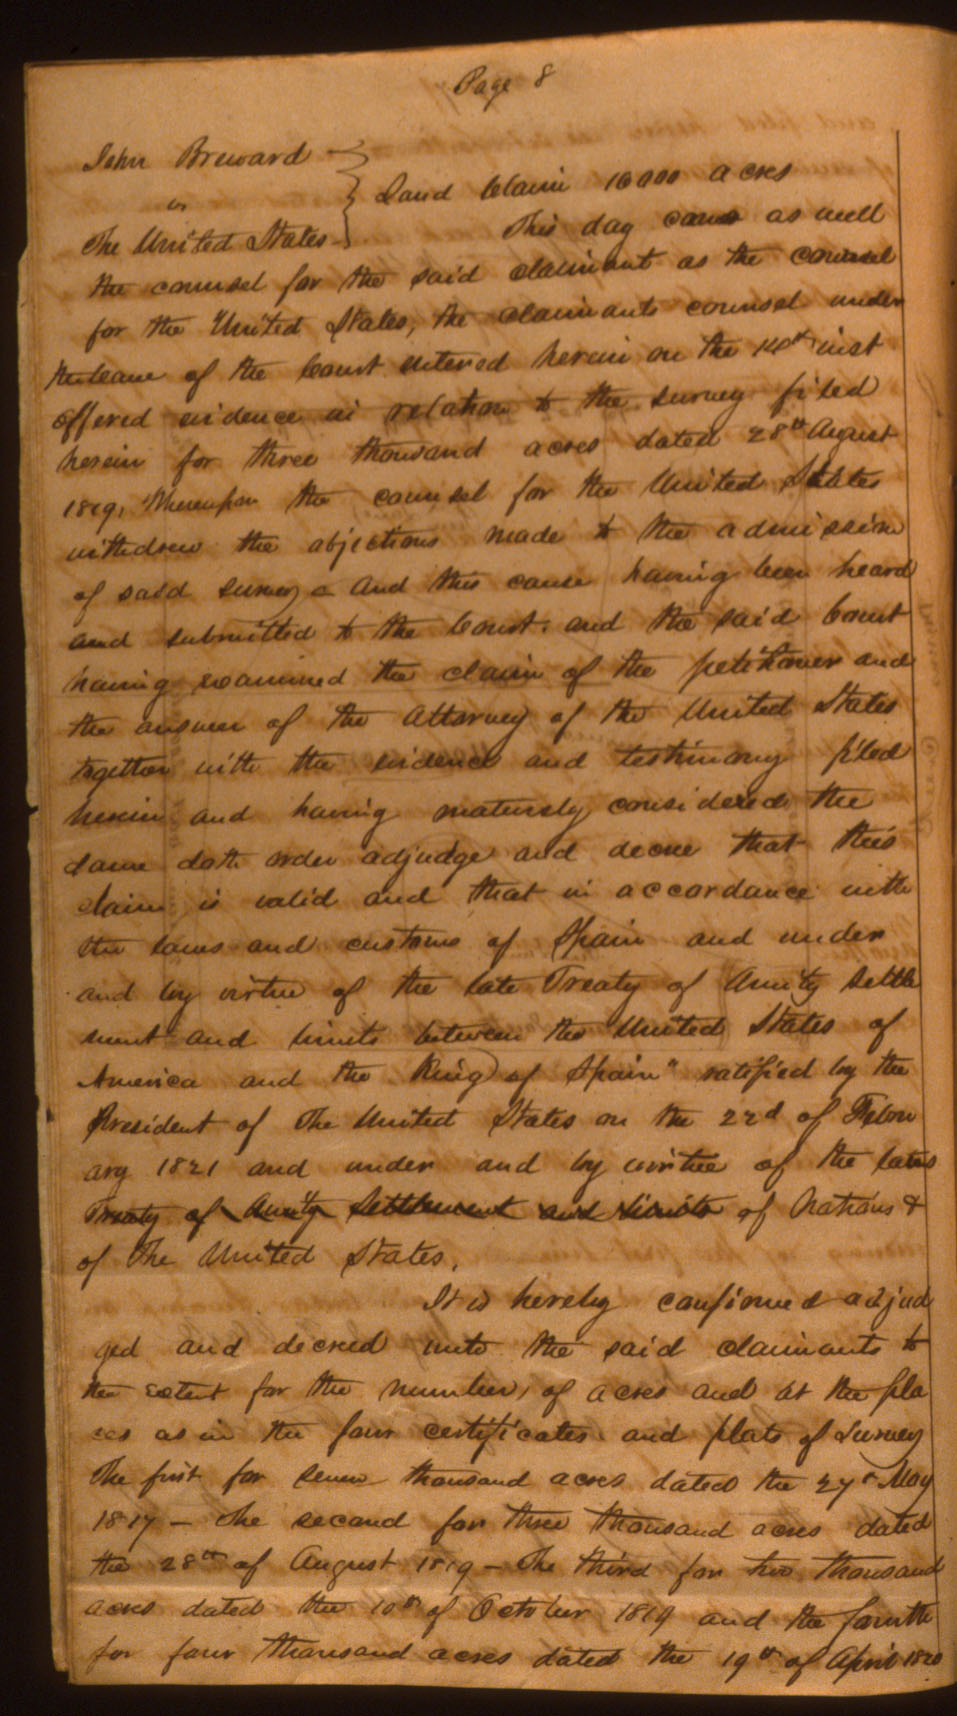 Page 8
John Breward
vs
The United States
Land Claim 16000 acres
This day came as well
the counsel for the said claimant as the counsel
for the United States, the claimants counsel under
the leave of the Court entered herein on the 14th inst
offered evidence in relation to the survey filed
herein for three thousand acres dated 28th August
1819, Whereupon the counsel for the United States
withdrew the objections made to the admission
of said survey - and this cause having been heard
and submitted to the Court. and the said Court
having examined the claim of the petitioner and
the answer of the Attorney of the United States
together with the evidence and testimony filed
herein and having maturely considered the
same doth order adjudge and decree that this
claim is valid and that in accordance with
the laws and customs of Spain and under
and by virtue of the late Treaty of Amity Settle
ment and limits between the United States of
America and the King of Spain" ratified by the
President of The United States on the 22d of Febru
ary 1821 and under and by virtue of the laws
Treaty of Amity Settlement and limits of Nations &
of The United States.
It is hereby confirmed adjud
ged and decreed unto the said claimants to
the extent for the number, of acres and at the pla
ces as in the four certificates and plats of Survey
The first for seven thousand acres dated the 27th May
1817 - The second for three thousand acres dated
the 28th of August 1819 - The third for two thousand
acres dated the 10th of October 1819 and the fourth
for four thousand acres dated the 19th of April 1820